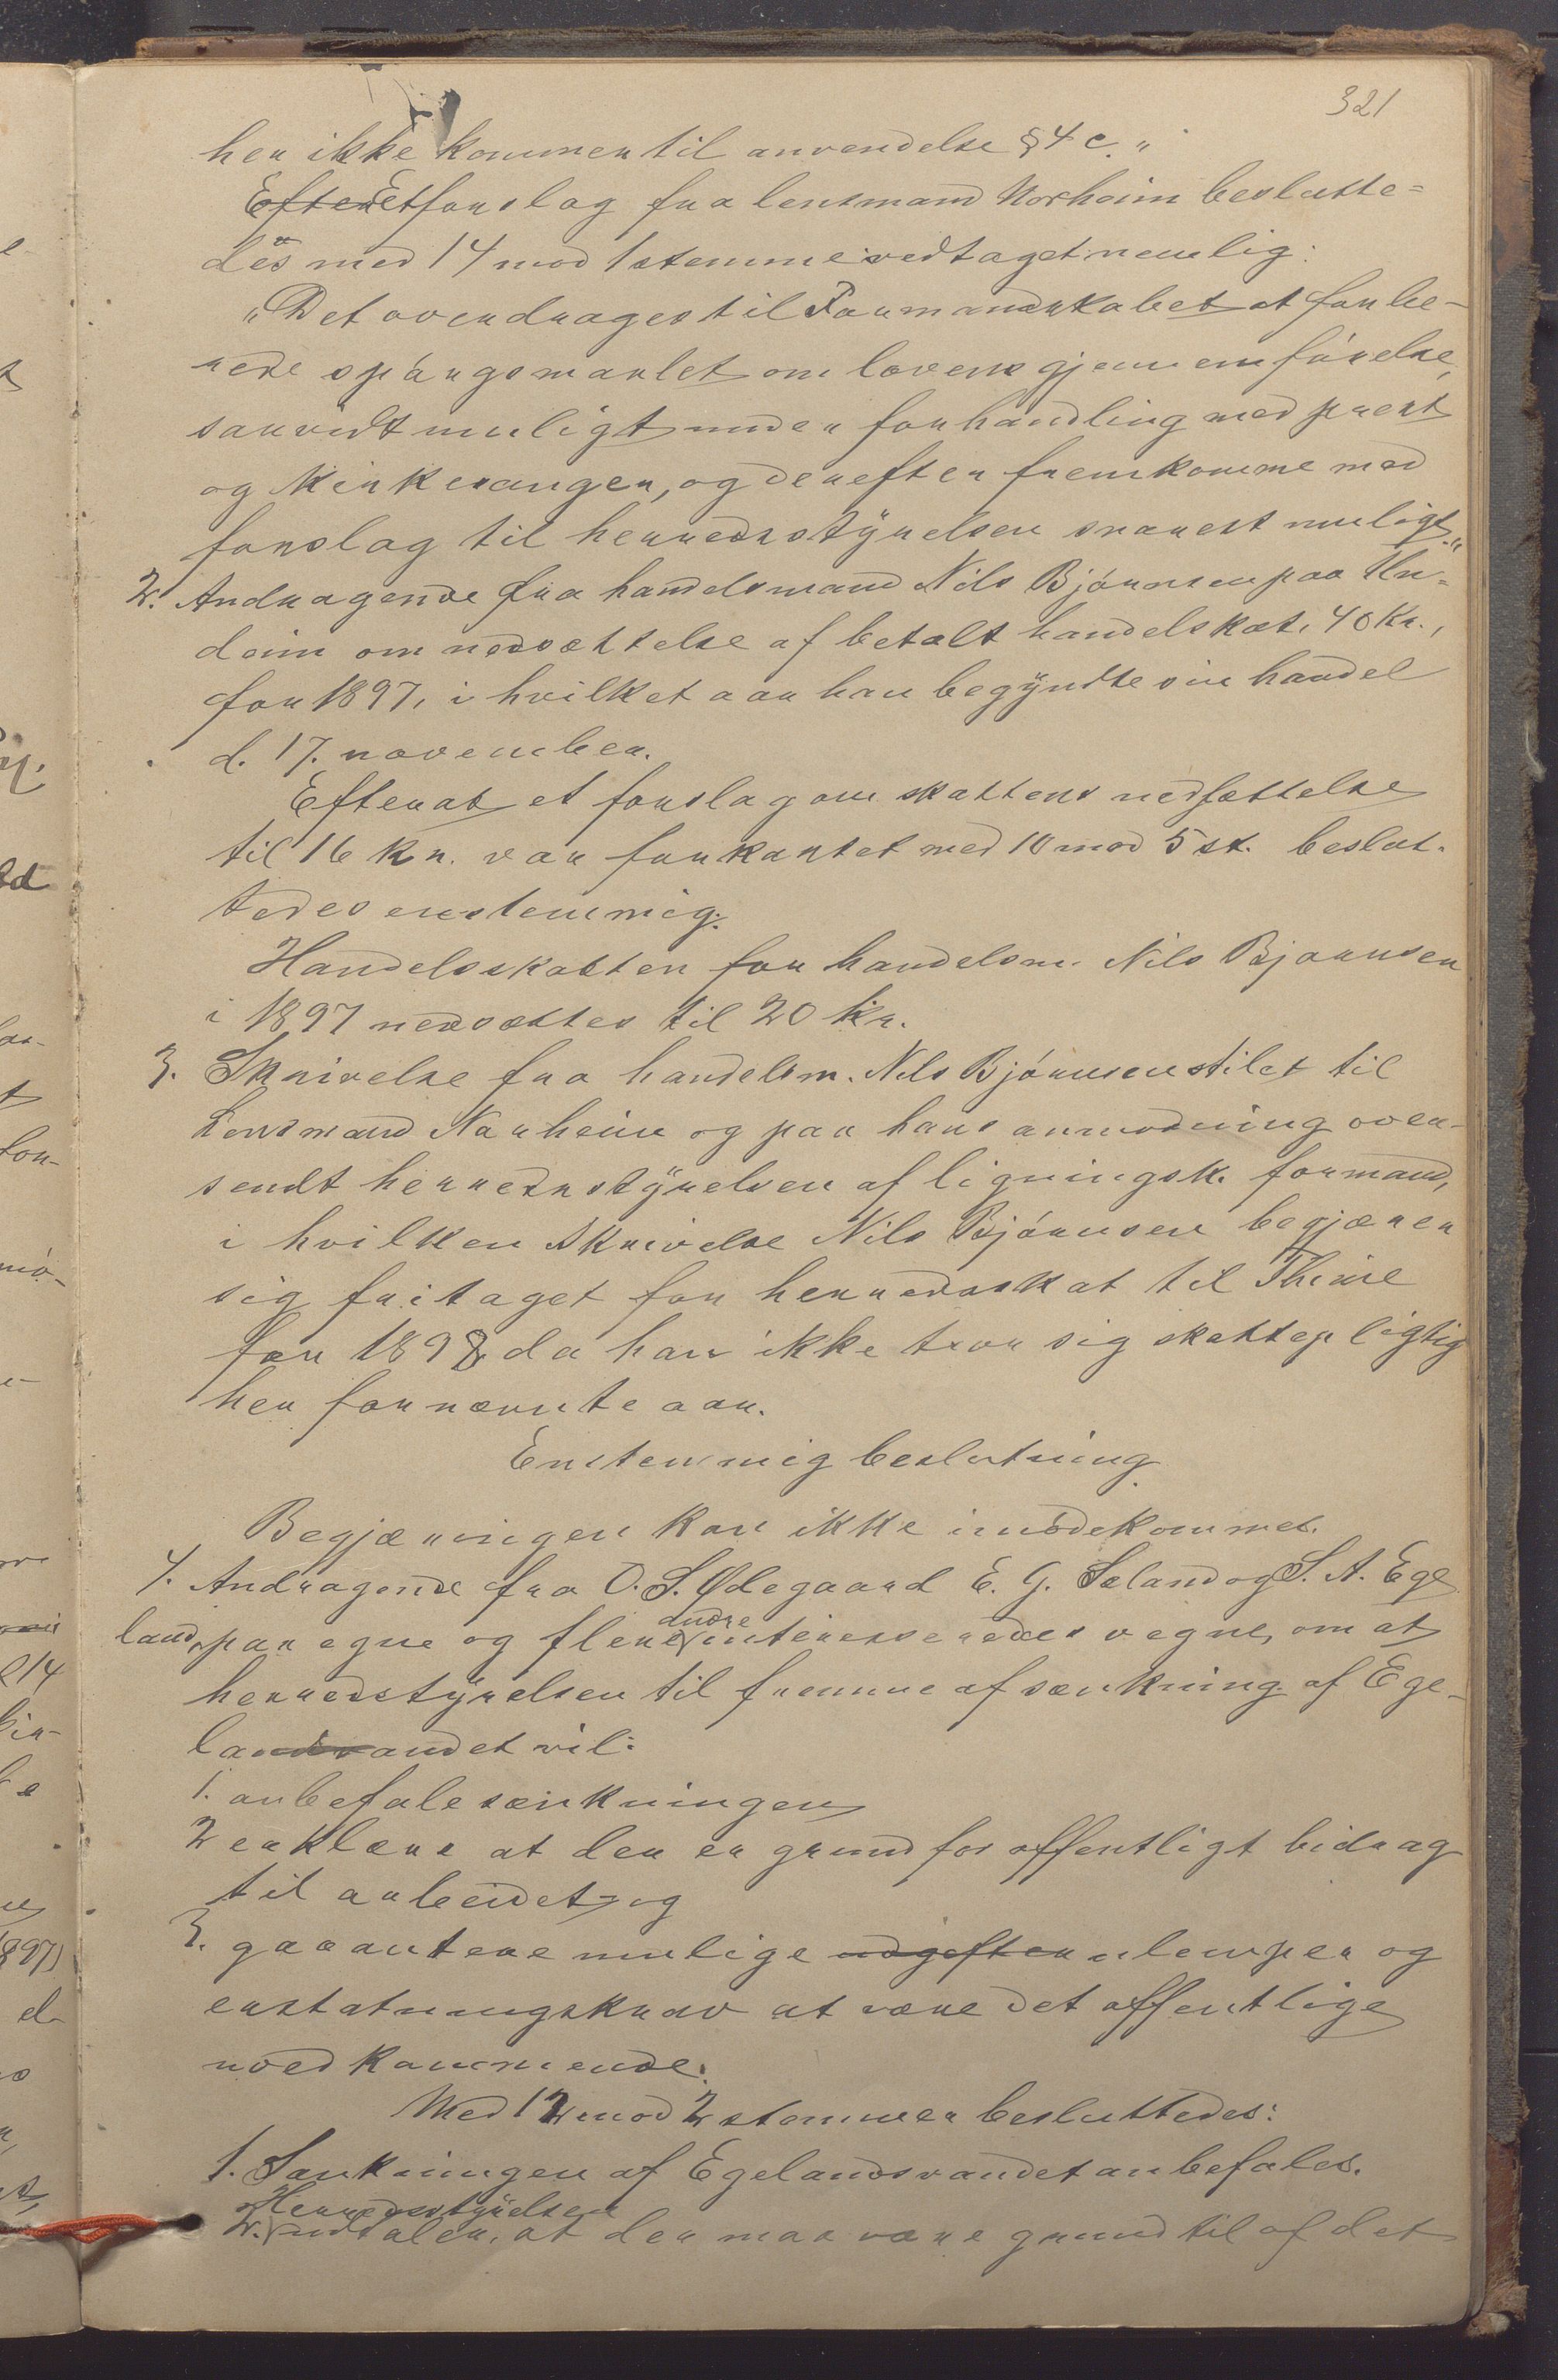 321
her ikke kommer til anvendelse § 4 c."
Efter Et forslag fra lensmand Norheim beslutte-
des med 14 mod 1 stemme vedtaget nemlig:
"Det overdrages til Formandskabet at forbe-
rede spørgsmaalet om lovens gjennemførelse,
saavidt muligt under forhandling med prest
og Kirkesanger, og derefter fremkomme med
forslag til herredsstyrelsen snarest muligt."
2. Andragende fra handelsmand Nils Bjørnsen paa Un-
deim om nedsættelse af betalt handelskat, 40 Kr.,
for 1897, i hvilket aar han begyndte sin handel
d. 17. november.
Efterat et forslag om skattens nedsættelse
til 16 Kr. var forkastet med 10 mod 5 st. beslut-
tedes enstemmig:
Handelsskatten for handelsm. Nils Bjørnsen
i 1897 nedsættes til 20 kr.
3. Skrivelse fra handelsm. Nils Bjørnsen stilet til
Lensmand Norheim og paa hans anmodning over-
sendt herredsstyrelsen af ligningsk. formand,
i hvilken Skrivelse Nils Bjørnsen begjærer
sig fritaget for herredsskat til Thime
for 1898, da han ikke tror sig skattepligtig
her for nævnte aar.
Enstemmig beslutning
Begjæringen kan ikke imødekommes.
4. Andragende fra O. S. Ødegaard E. G. Sæland og S. A. Ege
land, paa egne og flere andre interesseredes vegne, om at
herredstyrelsen til fremme af sænkning af Ege-
landsvandet vil:
1. anbefale sænkningen
2 erklære at der er grund for offentligt bidrag
til arbeidet, og
3. garantere mulige udgifter ulemper og
erstatningskrav at være det offentlige
uvedkommende.
Med 12 mod 2 stemmer besluttedes:
1. Sænkningen af Egelandsvandet anbefales.
2. Herredsstyrelsen udtaler, at der maa være grund til af det